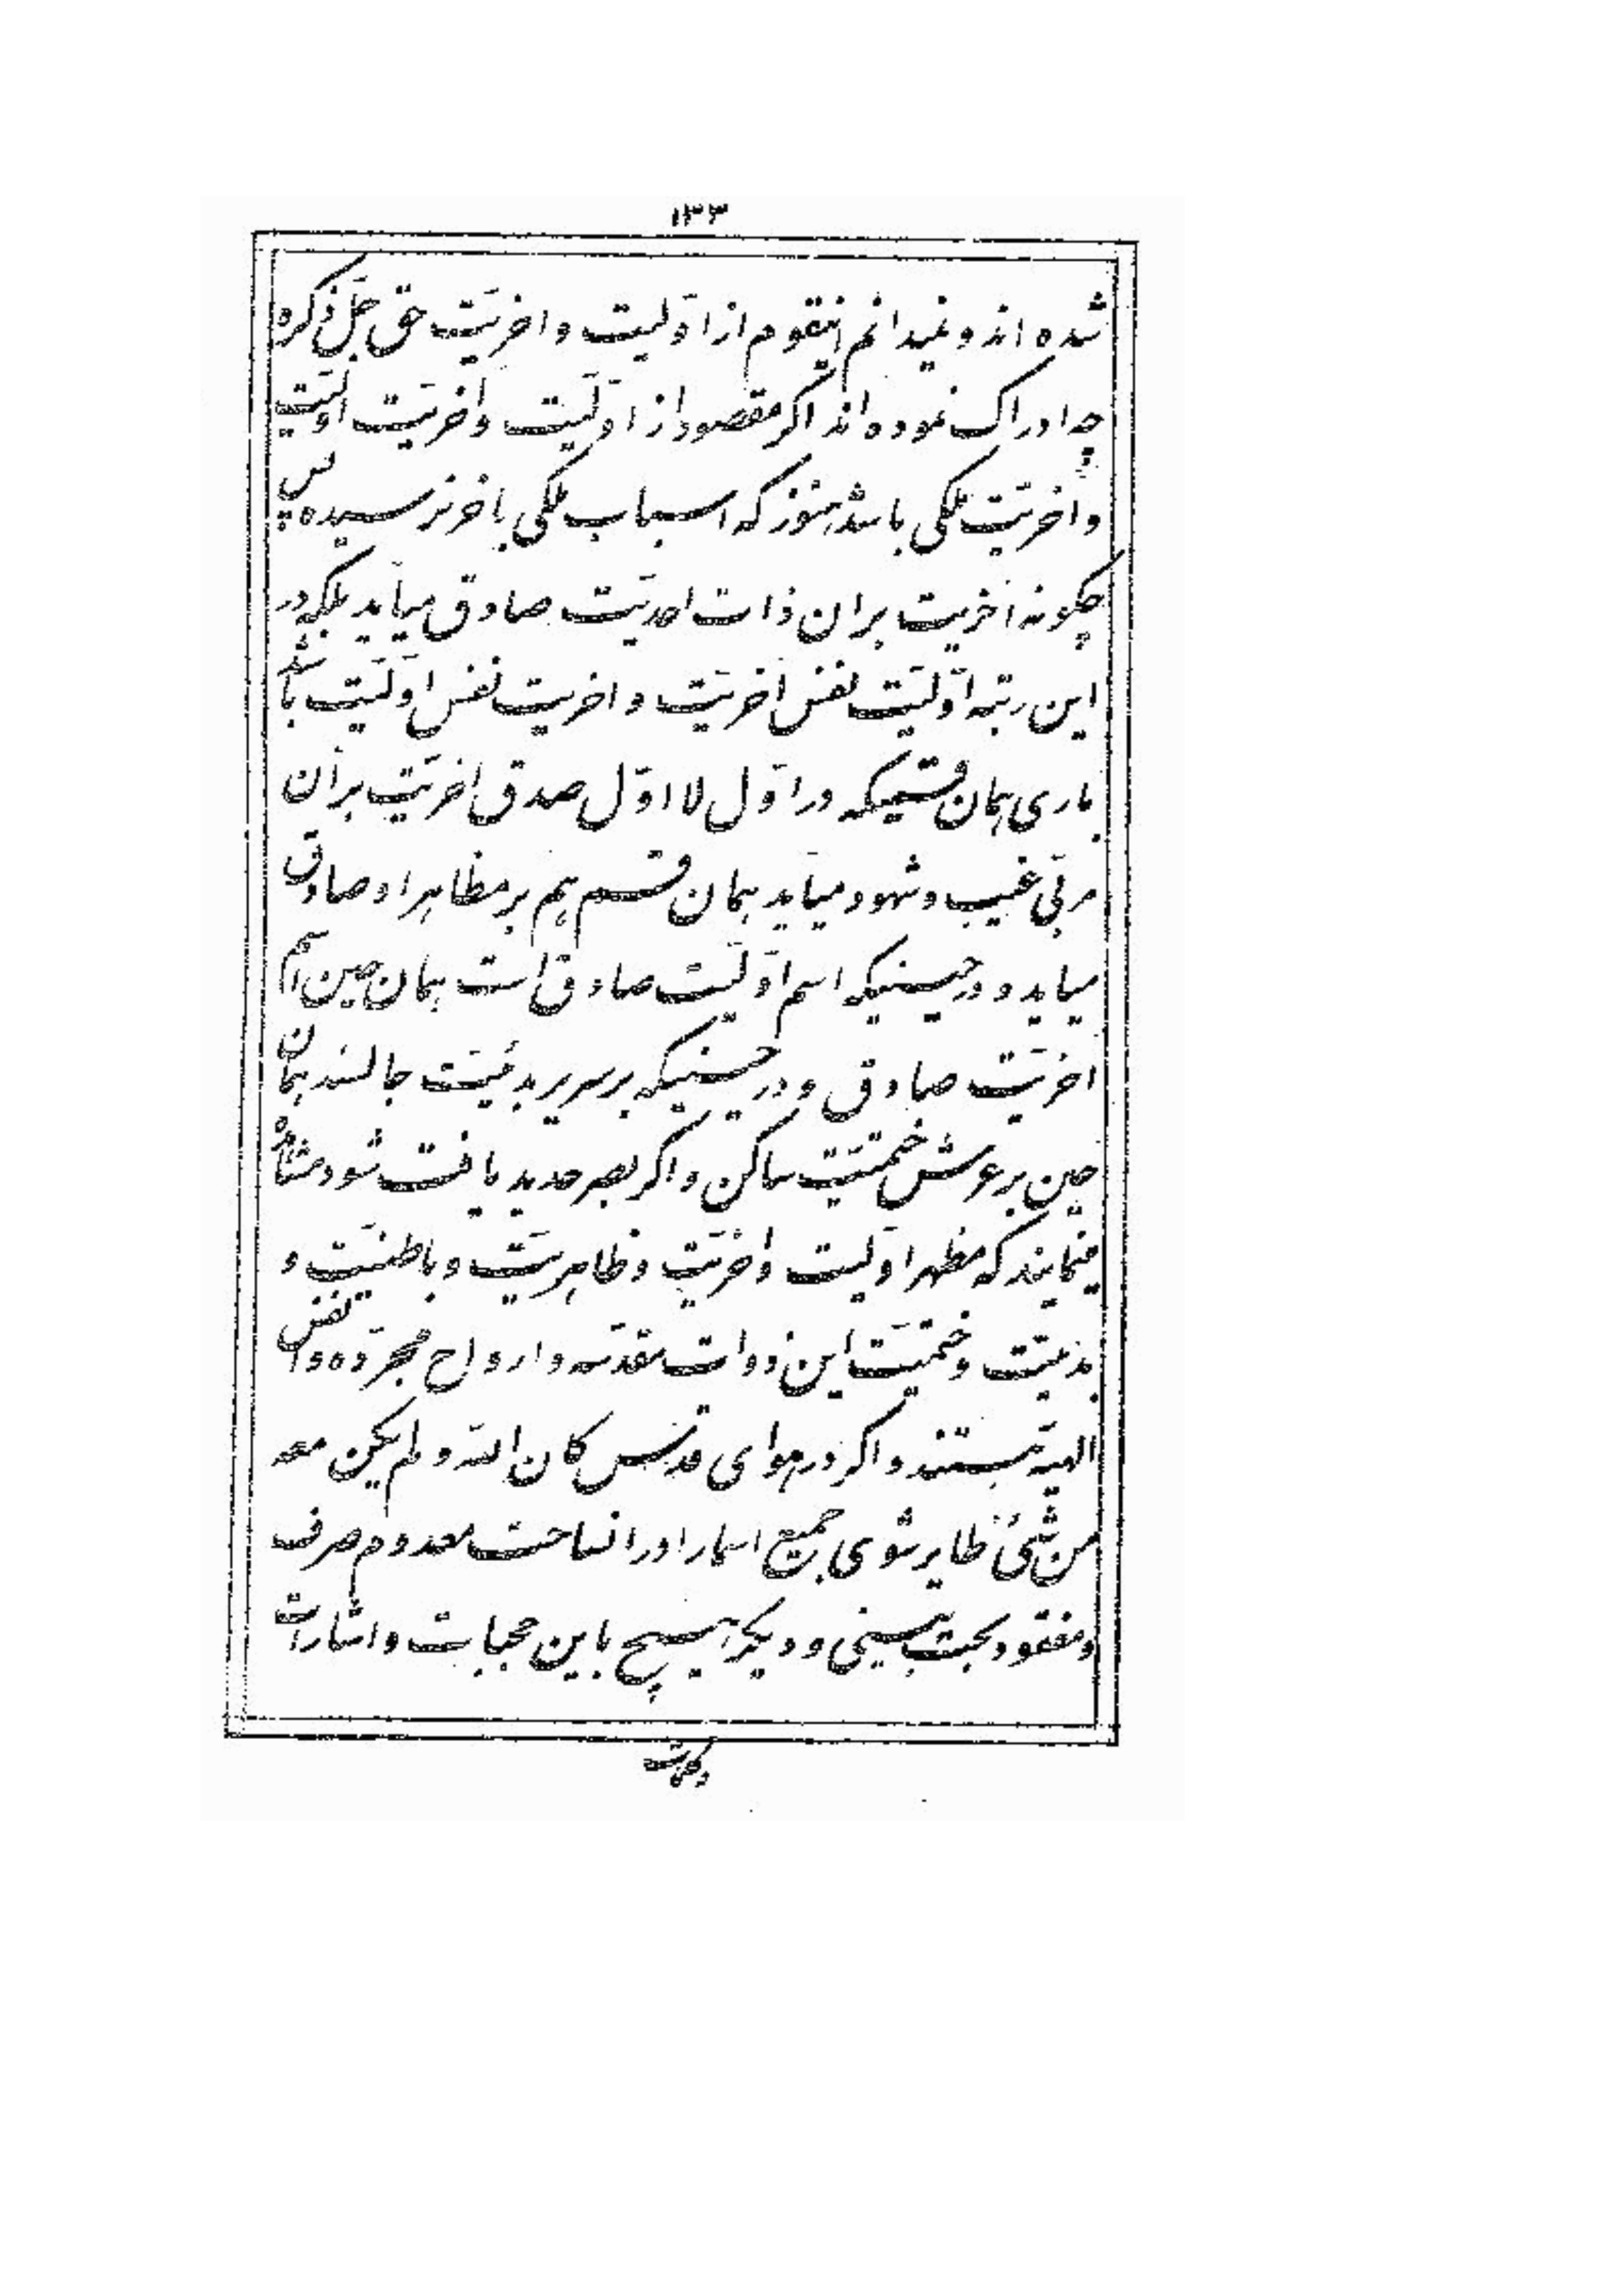 ۱۳۳
شده اند و نمیدانم اینقوم از اوّلیت و اخریّت حق جلّ ذکره
چه ادراک نموده اند اکر مقصود از اوّلیّت و اخریّت اوّلیّت
و اخریّت ملکی باشد هنوز که اسباب ملکی باخر نرسیده پس
چکونه اخریت بر ان ذات احدیّت صادق میآید بلکه در
این رتبه اوّلیّت نفس اخریّت و اخریت نفس اوّلیّت باشد
باری همان قسمیکه در اوّل لا اوّل صدق اخریّت بر ان
مربّی غیب و شهود میآید همان قسم هم بر مظاهر او صادق
میاید و در حینیکه اسم اوّلیّت صادق است همان حین اسم
اخریّت صادق و در حینیکه بر سریر بدئیّت جالسند همان
حین بر عرش ختمیّت ساکن و اکر بصر حدید یافت شود مشاهده
مینمایند که مظهر اوّلیت و اخریّت و ظاهریّت و باطنیّت و
بدئیّت و ختمیّت این ذوات مقدّسه و ارواح مجرّده و انفس
الهیّه هستند و اکر در هوای قدس کان الله و لم یکن معه
من شیٔ طایر شوی جمیع اسما را در انساحت معدوم صرف
و مفقود بحت بینی و دیکر هیچ باین حجبات و اشارات
و کلمات